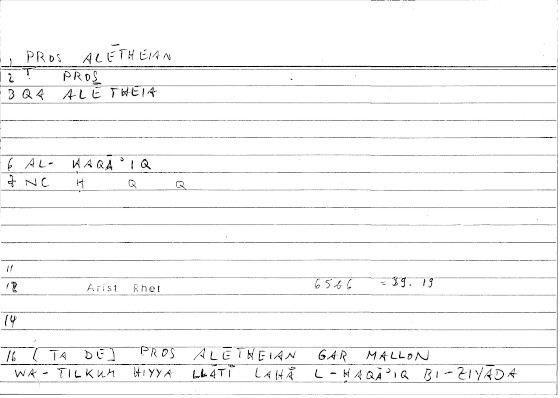 1 PROS ALĒTHEIAN
2 T PROS
3 QA ALĒTHEIA
6 AL-ḤAQĀʾIQ
7 NC Ḥ Q Q
11
12 Arist Rhet = 39.19
14
16 [TA DE] PROS ALĒTHEIAN GAR MALLON
WA-TILKUM HIYYA LLĀTĪ LAHĀ L-ḤAQĀʾIQ BI-ZIYĀDA